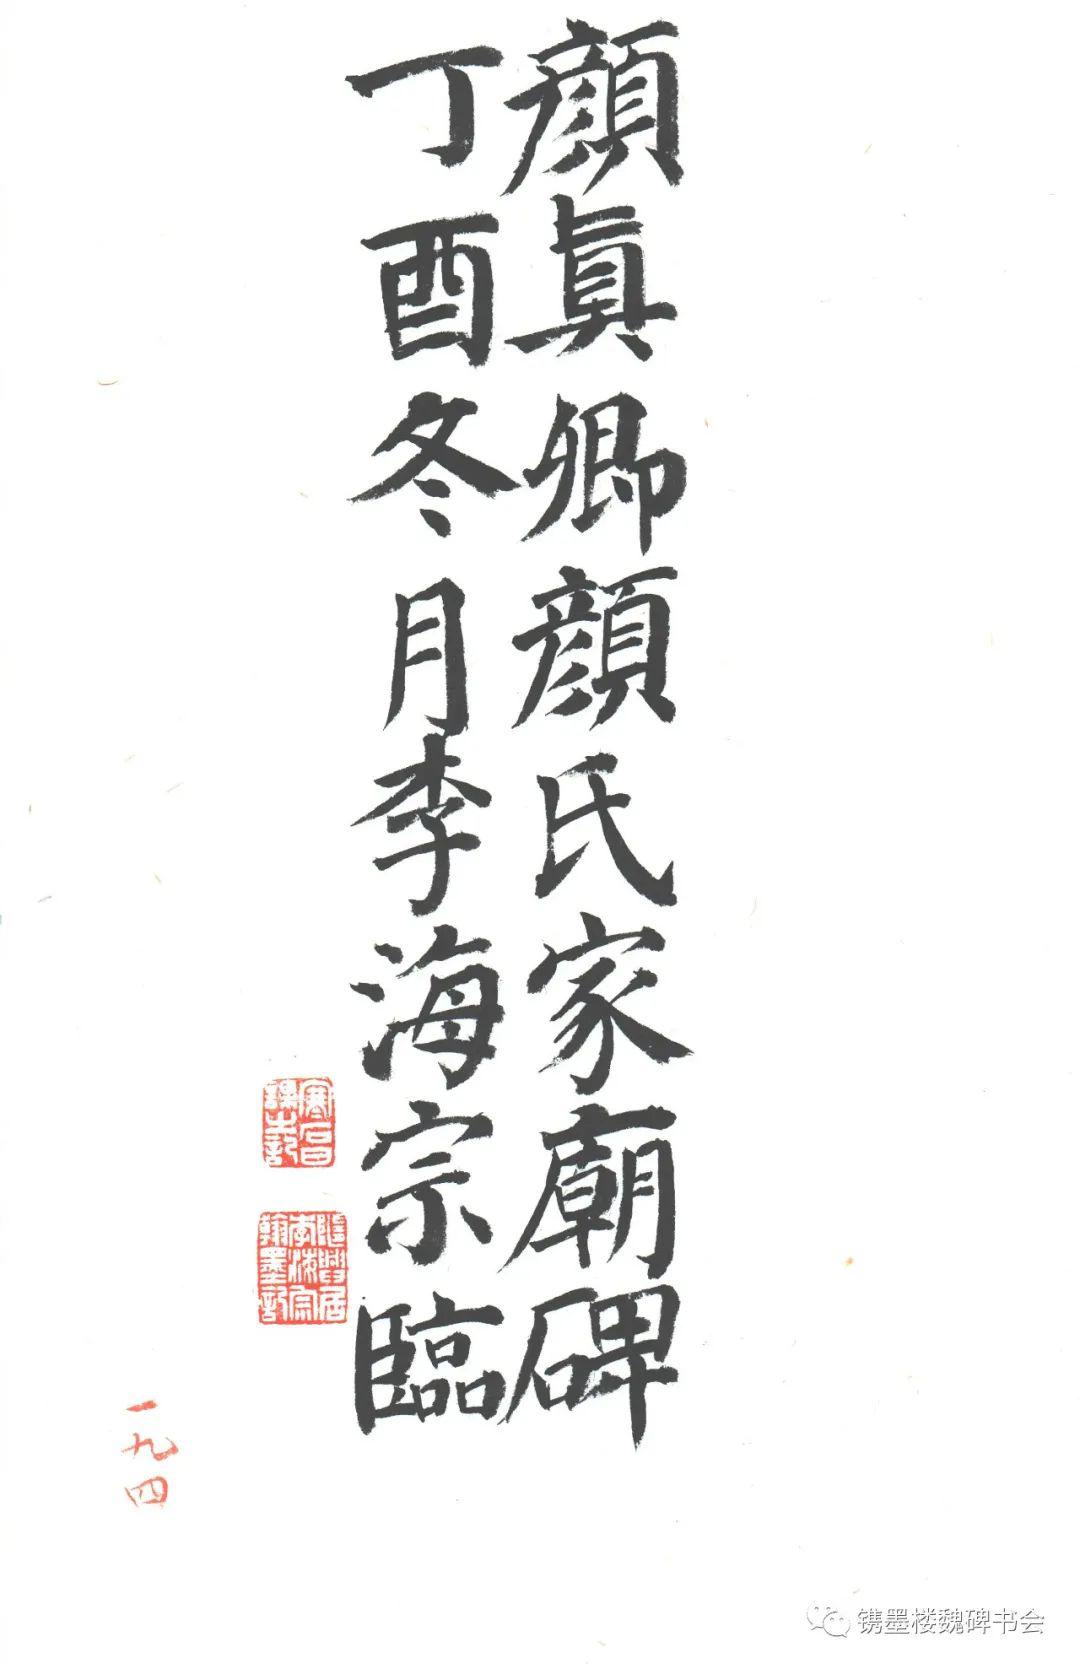 顔真卿顔氏家廟碑
丁酉冬月李海宗臨
一九四
镌墨楼魏碑书会